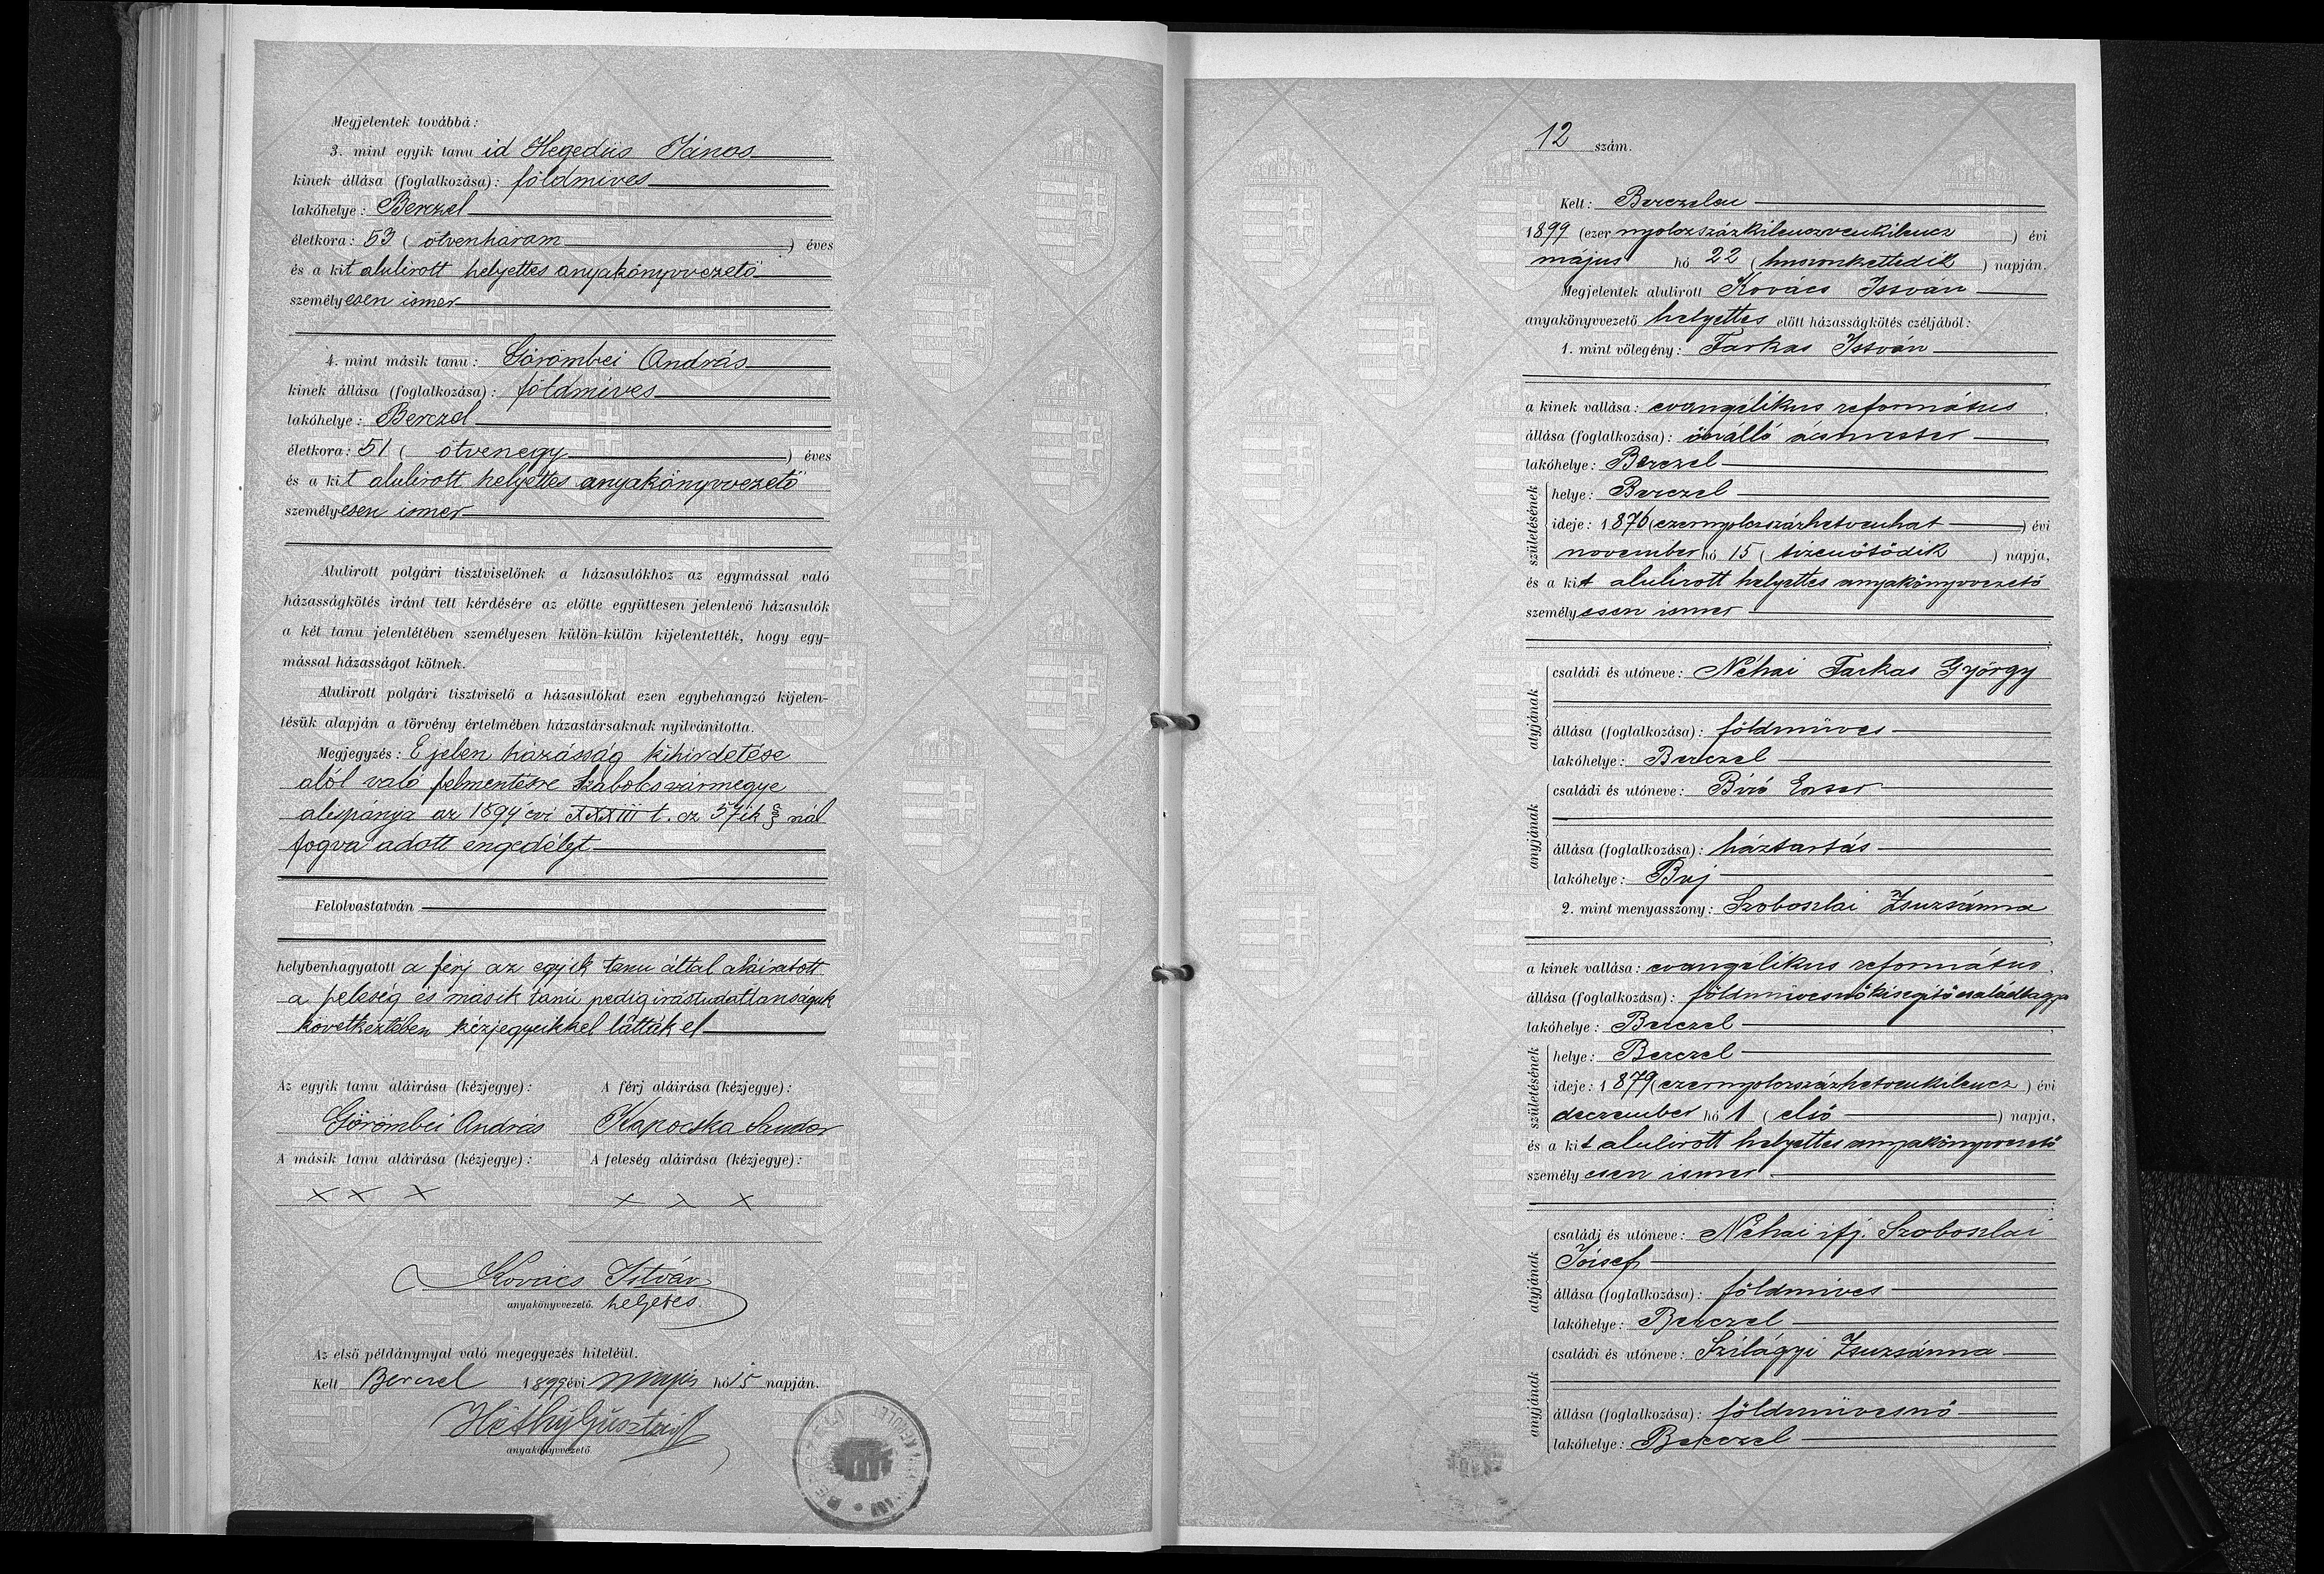 Megjelentek továbbá:
3. mint egyik tanu id Hegedüs János
kinek állása (foglalkozása): földmives
lakóhelye: Berczel
életkora: 53 (ötvenhárom) éves
és a kit alulirott helyettes anyakönyvvezető
személyesen ismer
4. mint másik tanu: Görömbei András
kinek állása (foglalkozása): földmives
lakóhelye: Berczel
életkora: 51 (ötvenegy) éves
és a kit alulirott helyettes anyakönyvvezető
személyesen ismer
Alulirott polgári tisztviselőnek a házasulókhoz az egymással való
házasságkötés iránt tett kérdésére az előtte együttesen jelenlevő házasulók
a két tanu jelenlétében személyesen külön-külön kijelentették, hogy egy-
mással házasságot kötnek.
Alulirott polgári tisztviselő a házasulókat ezen egybehangzó kijelen-
tésük alapján a törvény értelmében házastársaknak nyilvánitotta.
Megjegyzés: E jelen házásság kihirdetése
alól való felmentésre Szabolcsvármegye
alispánja az 1894 évi XXXIII t. cz 57ik § nál
fogva adott engedélyt
Felolvastatván
helybenhagyatott a férj az egyik tanu által aláiratott
a feleség és másik tanú pedig irástudatlanságuk
következtében kézjegyeikkel látták el
Az egyik tanu aláirása (kézjegye): A férj aláirása (kézjegye):
Görömbei András Kapocska Sandor
A másik tanu aláirása (kézjegye): A feleség aláirása (kézjegye):
x x x x x x
Kovács István
anyakönyvvezető. helyetes.
Az első példánynyal való megegyezés hiteléül.
Kelt Berczel 1899 évi május hó 15 napján.
Héthy Gusztáv
anyakönyvvezető
12 szám.
Kelt: Berczelen
1899 (ezer nyolczszázkilenczvenkilencz) évi
május hó 22 (huszonkettedik) napján.
Megjelentek alulirott Kovács István
anyakönyvvezető helyettes előtt házasságkötés czéljából:
1. mint vőlegény: Farkas István
a kinek vallása: evangélikus református,
állása (foglalkozása): önálló ácsmester,
lakóhelye: Berczel,
születésének
helye: Berczel
ideje: 1876 (ezernyolczszázhetvenhat) évi
november hó 15 (tizenötödik) napja,
és a kit alulirott helyettes anyakönyvvezető
személyesen ismer
atyjának
családi és utóneve: Néhai Farkas György
állása (foglalkozása): földmüves
lakóhelye: Berczel
anyjának
családi és utóneve: Biró Eszter
állása (foglalkozása): háztartás
lakóhelye: Buj
2. mint menyasszony: Szoboszlai Zsuzsánna
a kinek vallása: evangélikus református,
állása (foglalkozása): földmüvesnő kisegitő családtagja
lakóhelye: Berczel,
születésének
helye: Berczel
ideje: 1879 (ezernyolczszázhetvenkilencz) évi
deczember hó 1 (első) napja,
és a kit alulirott helyettes anyakönyvvezető
személyesen ismer
atyjának
családi és utóneve: Néhai ifj. Szoboszlai
József
állása (foglalkozása): földmives
lakóhelye: Berczel
anyjának
családi és utóneve: Szilágyi Zsuzsánna
állása (foglalkozása): földmüvesnő
lakóhelye: Berczel